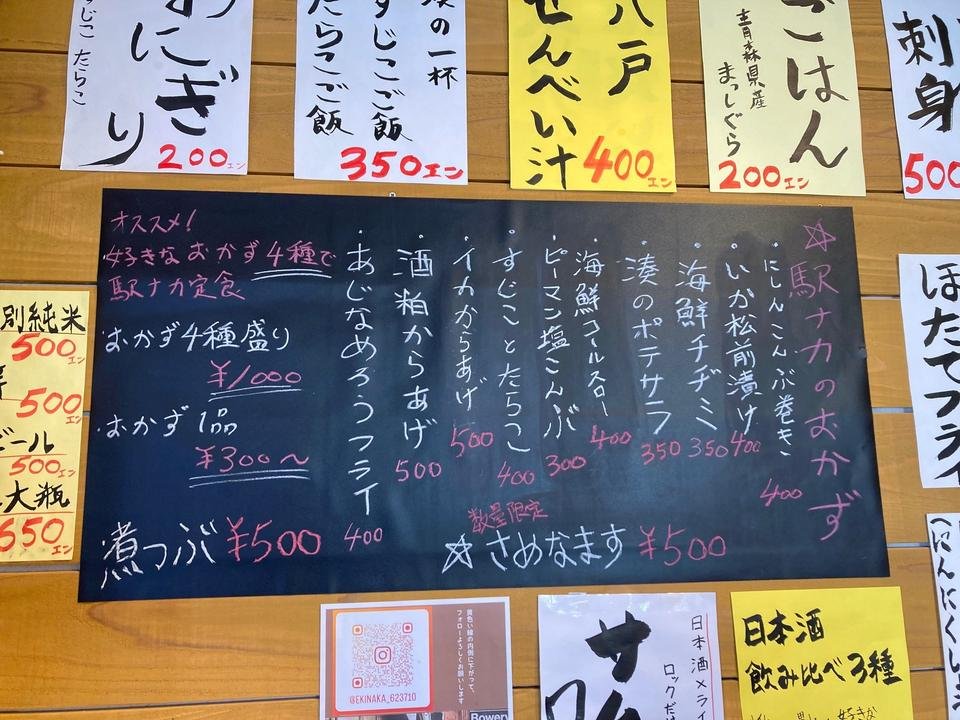 おにぎり
すじこ たらこ
200エン
の一杯
すじこご飯
たらこご飯
350エン
八戸
せんべい汁
400エン
ごはん
青森県産
まっしぐら
200エン
刺身
500
☆駅ナカのおかず
・にしんこんぶ巻き 400
・いか松前漬け 400
・海鮮チヂミ 350
・湊のポテサラ 350
・海鮮コールスロー 400
・ピーマン塩こんぶ 300
・すじことたらこ 400
・イカからあげ 500
・酒粕からあげ 500
・あじなめろうフライ 400
オススメ!
好きなおかず4種で
駅ナカ定食
・おかず4種盛り
¥1000
・おかず1品
¥300～
煮つぶ ¥500
数量限定
☆さめなます ¥500
別純米
500エン
500エン
ビール
500エン
大瓶
650エン
ほたてフライ
(にんにくしょ
黄色い線の内側に下がって、
フォローよろしくお願いします
@EKINAKA_623710
Bowery
サ
日本酒×ライ
ロックだけ
日本酒
飲み比べ3種